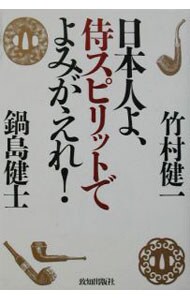 日本人よ、
侍スピリットで
よみがえれ！
竹村健一
鍋島健士
致知出版社